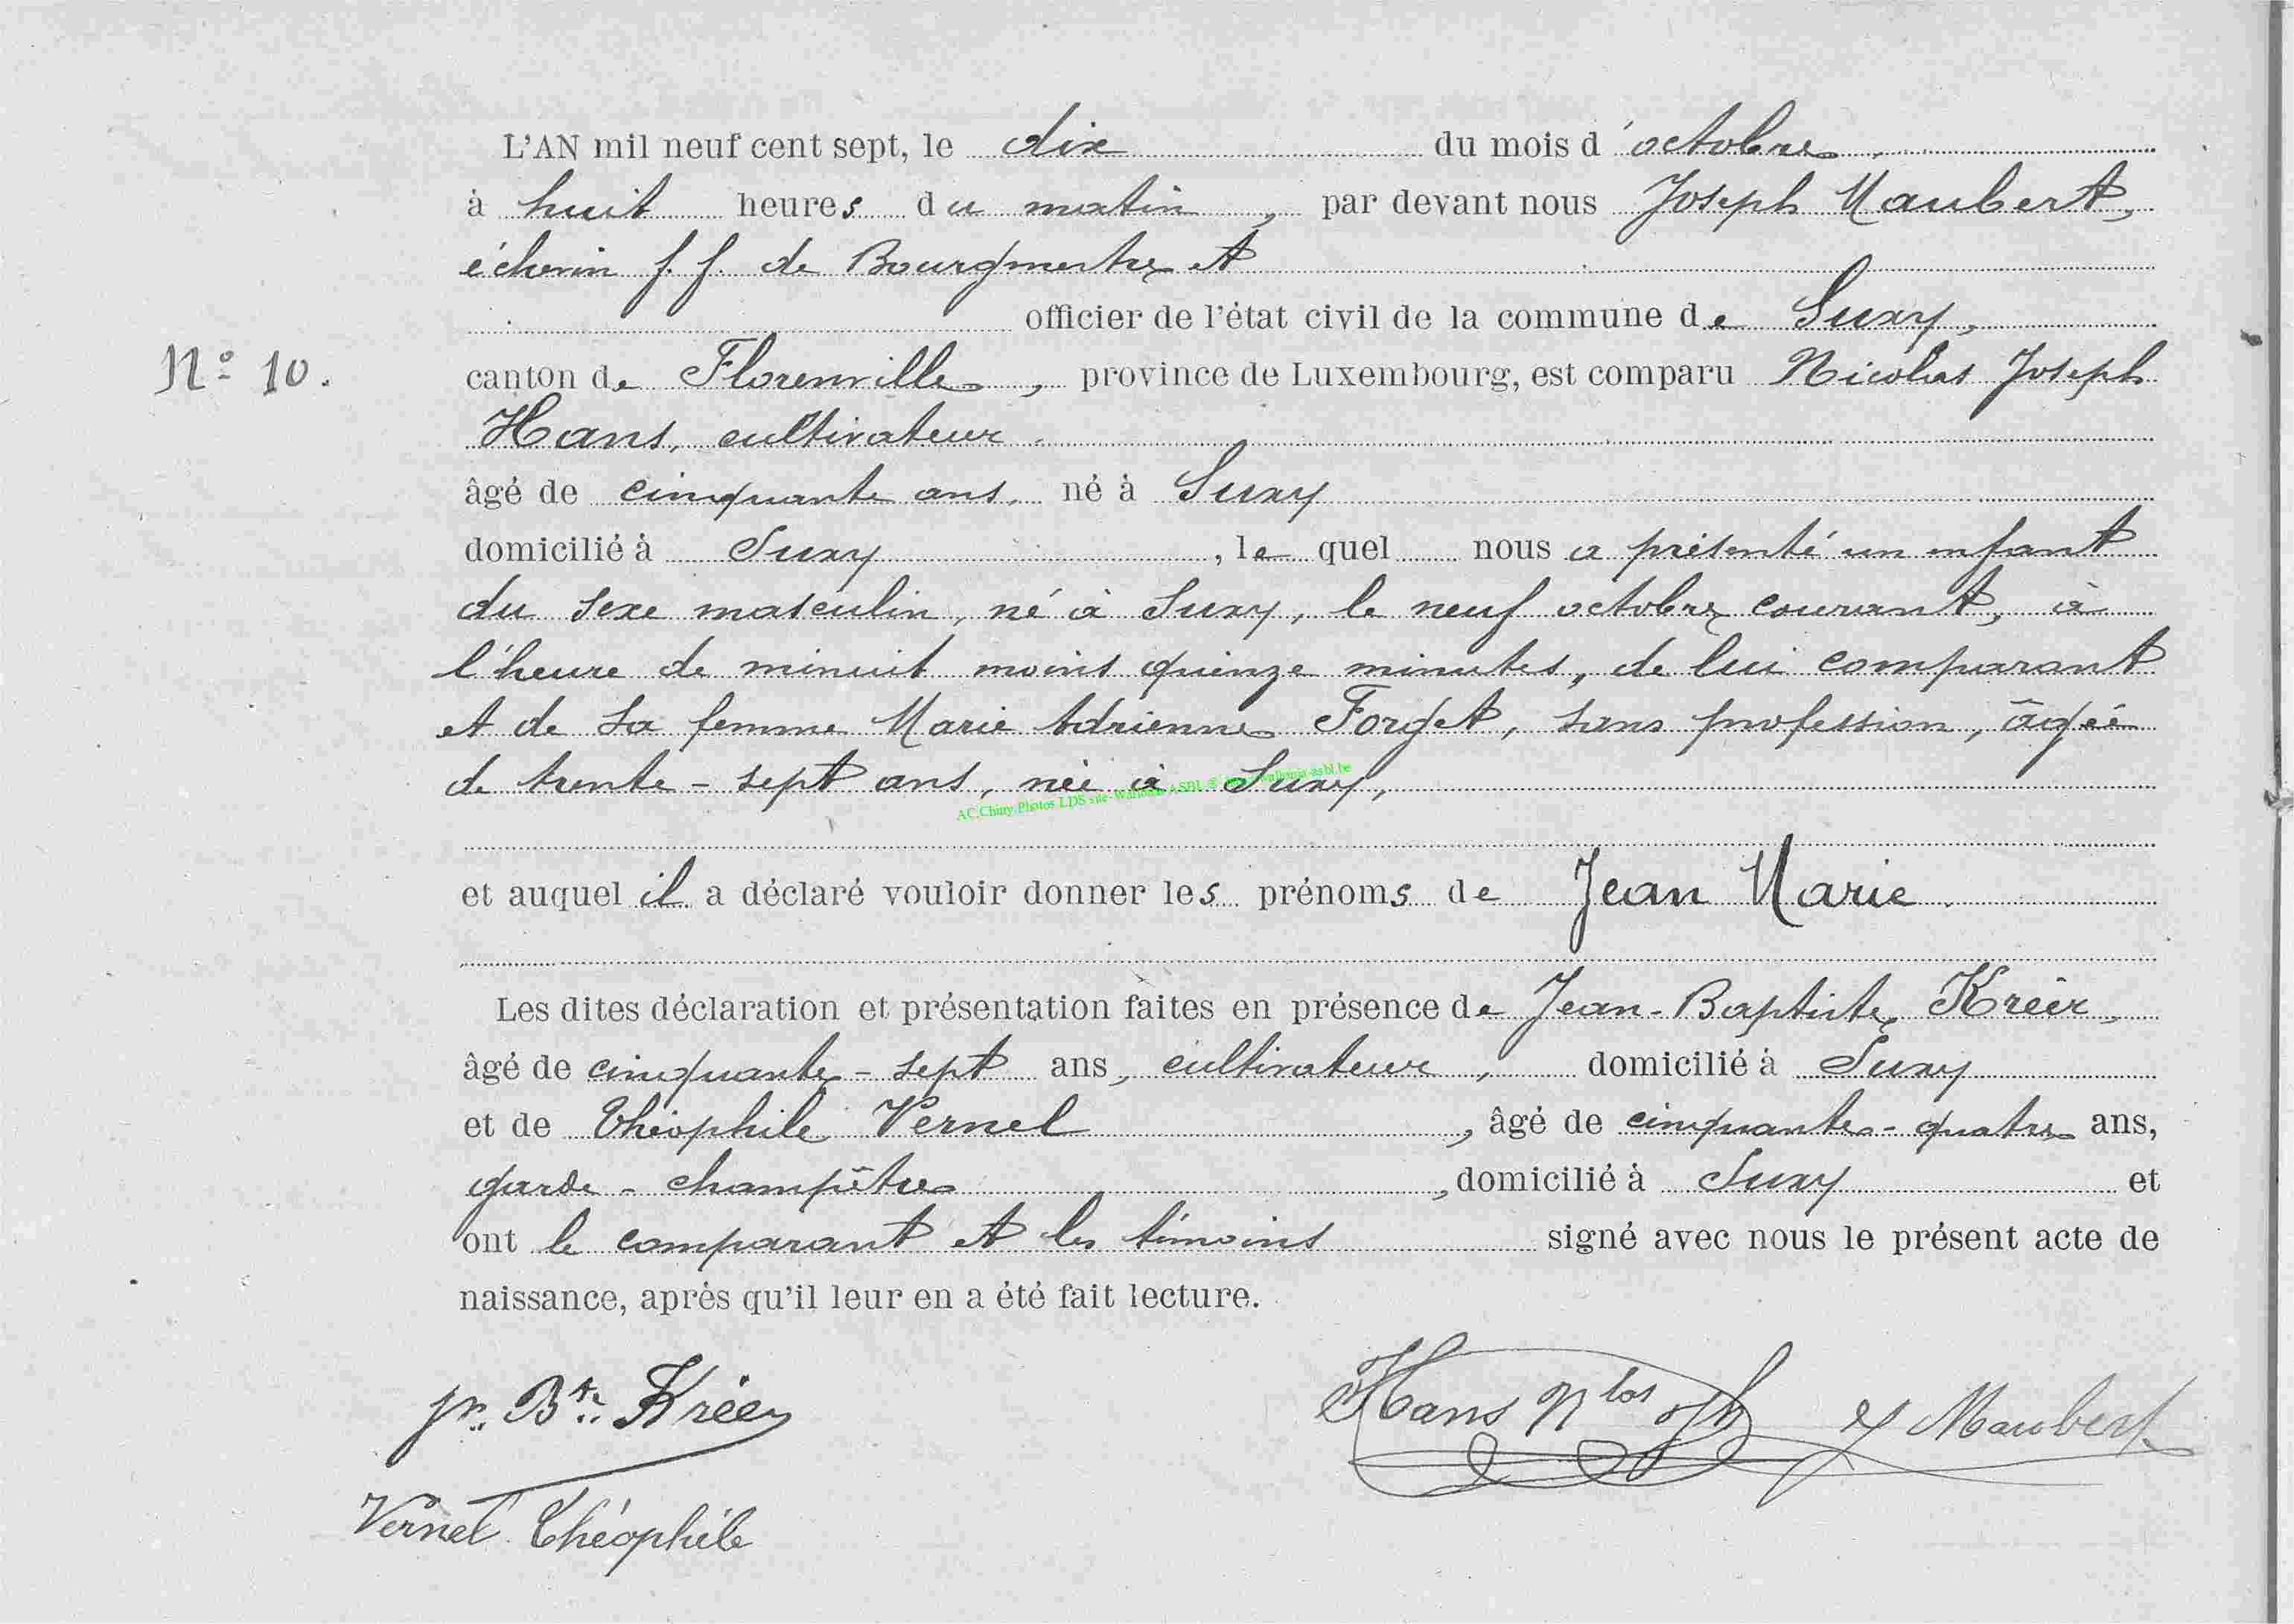 L'AN mil neuf cent sept, le dix du mois d'octobre
à huit heures du matin, par devant nous Joseph Maubert,
échevin f. f. de Bourgmestre et
officier de l'état civil de la commune de Suxy,
N° 10.
canton de Florenville, province de Luxembourg, est comparu Nicolas Joseph
Hans, cultivateur.
âgé de cinquante ans, né à Suxy
domicilié à Suxy, lequel nous a présenté un enfant
du sexe masculin, né à Suxy, le neuf octobre courant, à
l'heure de minuit moins quinze minutes, de lui comparant
et de sa femme Marie Adrienne Forget, sans profession, âgée
de trente-sept ans, née à Suxy,
et auquel il a déclaré vouloir donner les prénoms de Jean Marie.
Les dites déclaration et présentation faites en présence de Jean-Baptiste Kréer,
âgé de cinquante-sept ans, cultivateur, domicilié à Suxy
et de Théophile Vernel, âgé de cinquante-quatre ans,
garde-champêtre, domicilié à Suxy et
ont le comparant et les témoins signé avec nous le présent acte de
naissance, après qu'il leur en a été fait lecture.
Jn. Bte. Kréer
Hans Nlas Jph
J Maubert
Vernel Théophile